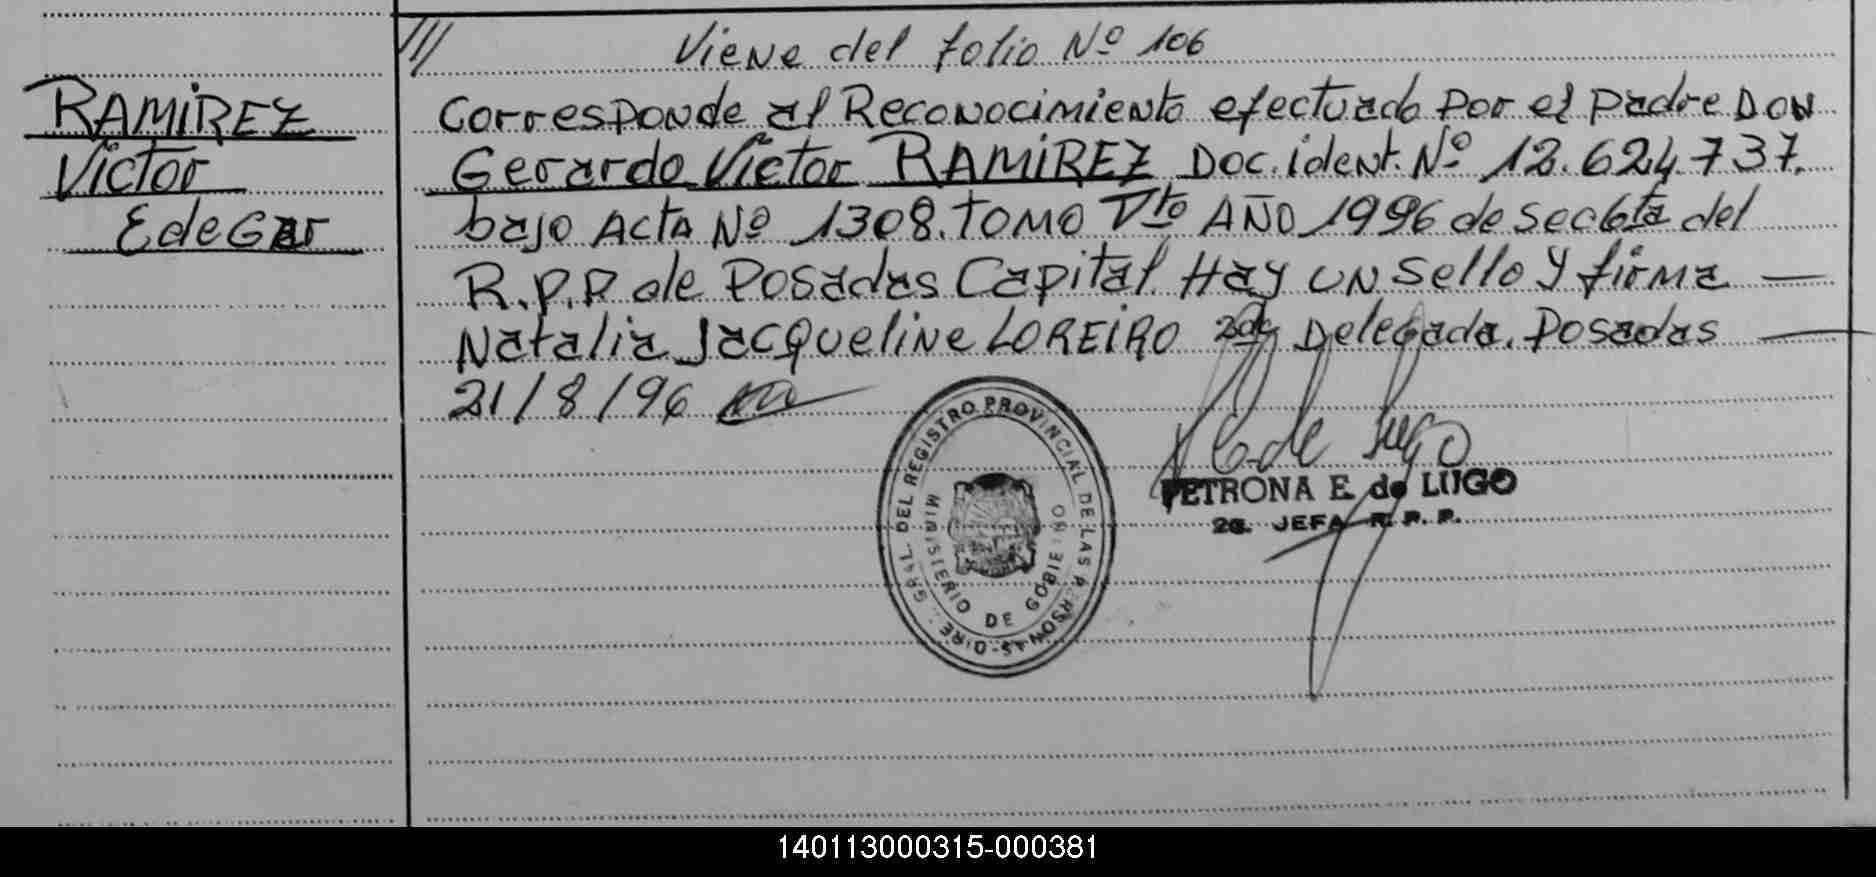 /// Viene del folio Nº 106
RAMIREZ
Victor
Edegar
Corresponde al Reconocimiento efectuado Por el padre DON
Gerardo Victor RAMIREZ Doc. ident. Nº 12.624.737.
bajo Acta Nº 1308. TOMO Vto AÑO 1996 de Sec 6ta del
R.P.P de Posadas Capital. Hay un sello y firma —
Natalia Jacqueline LOREIRO 2da Delegada. Posadas —
21/8/96
DIRE. GRAL. DEL REGISTRO PROVINCIAL DE LAS PERSONAS
MINISTERIO DE GOBIERNO
E. de Lugo
PETRONA E. de LUGO
2a. JEFA R. P. P.
140113000315-000381